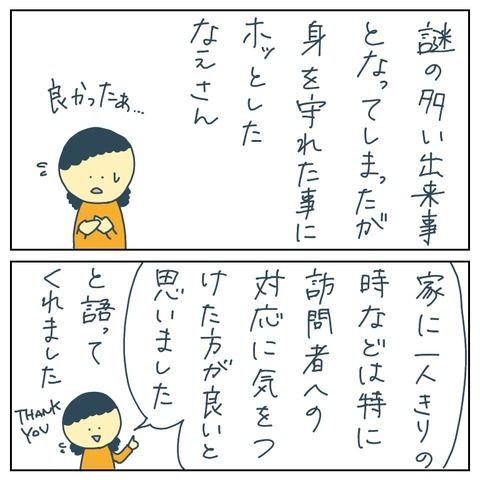 謎の多い出来事
となってしまったが
身を守れた事に
ホッとした
なえさん
良かったぁ…
家に一人きりの
時などは特に
訪問者への
対応に気をつ
けた方が良いと
思いました
と語って
くれました
THANK
YOU